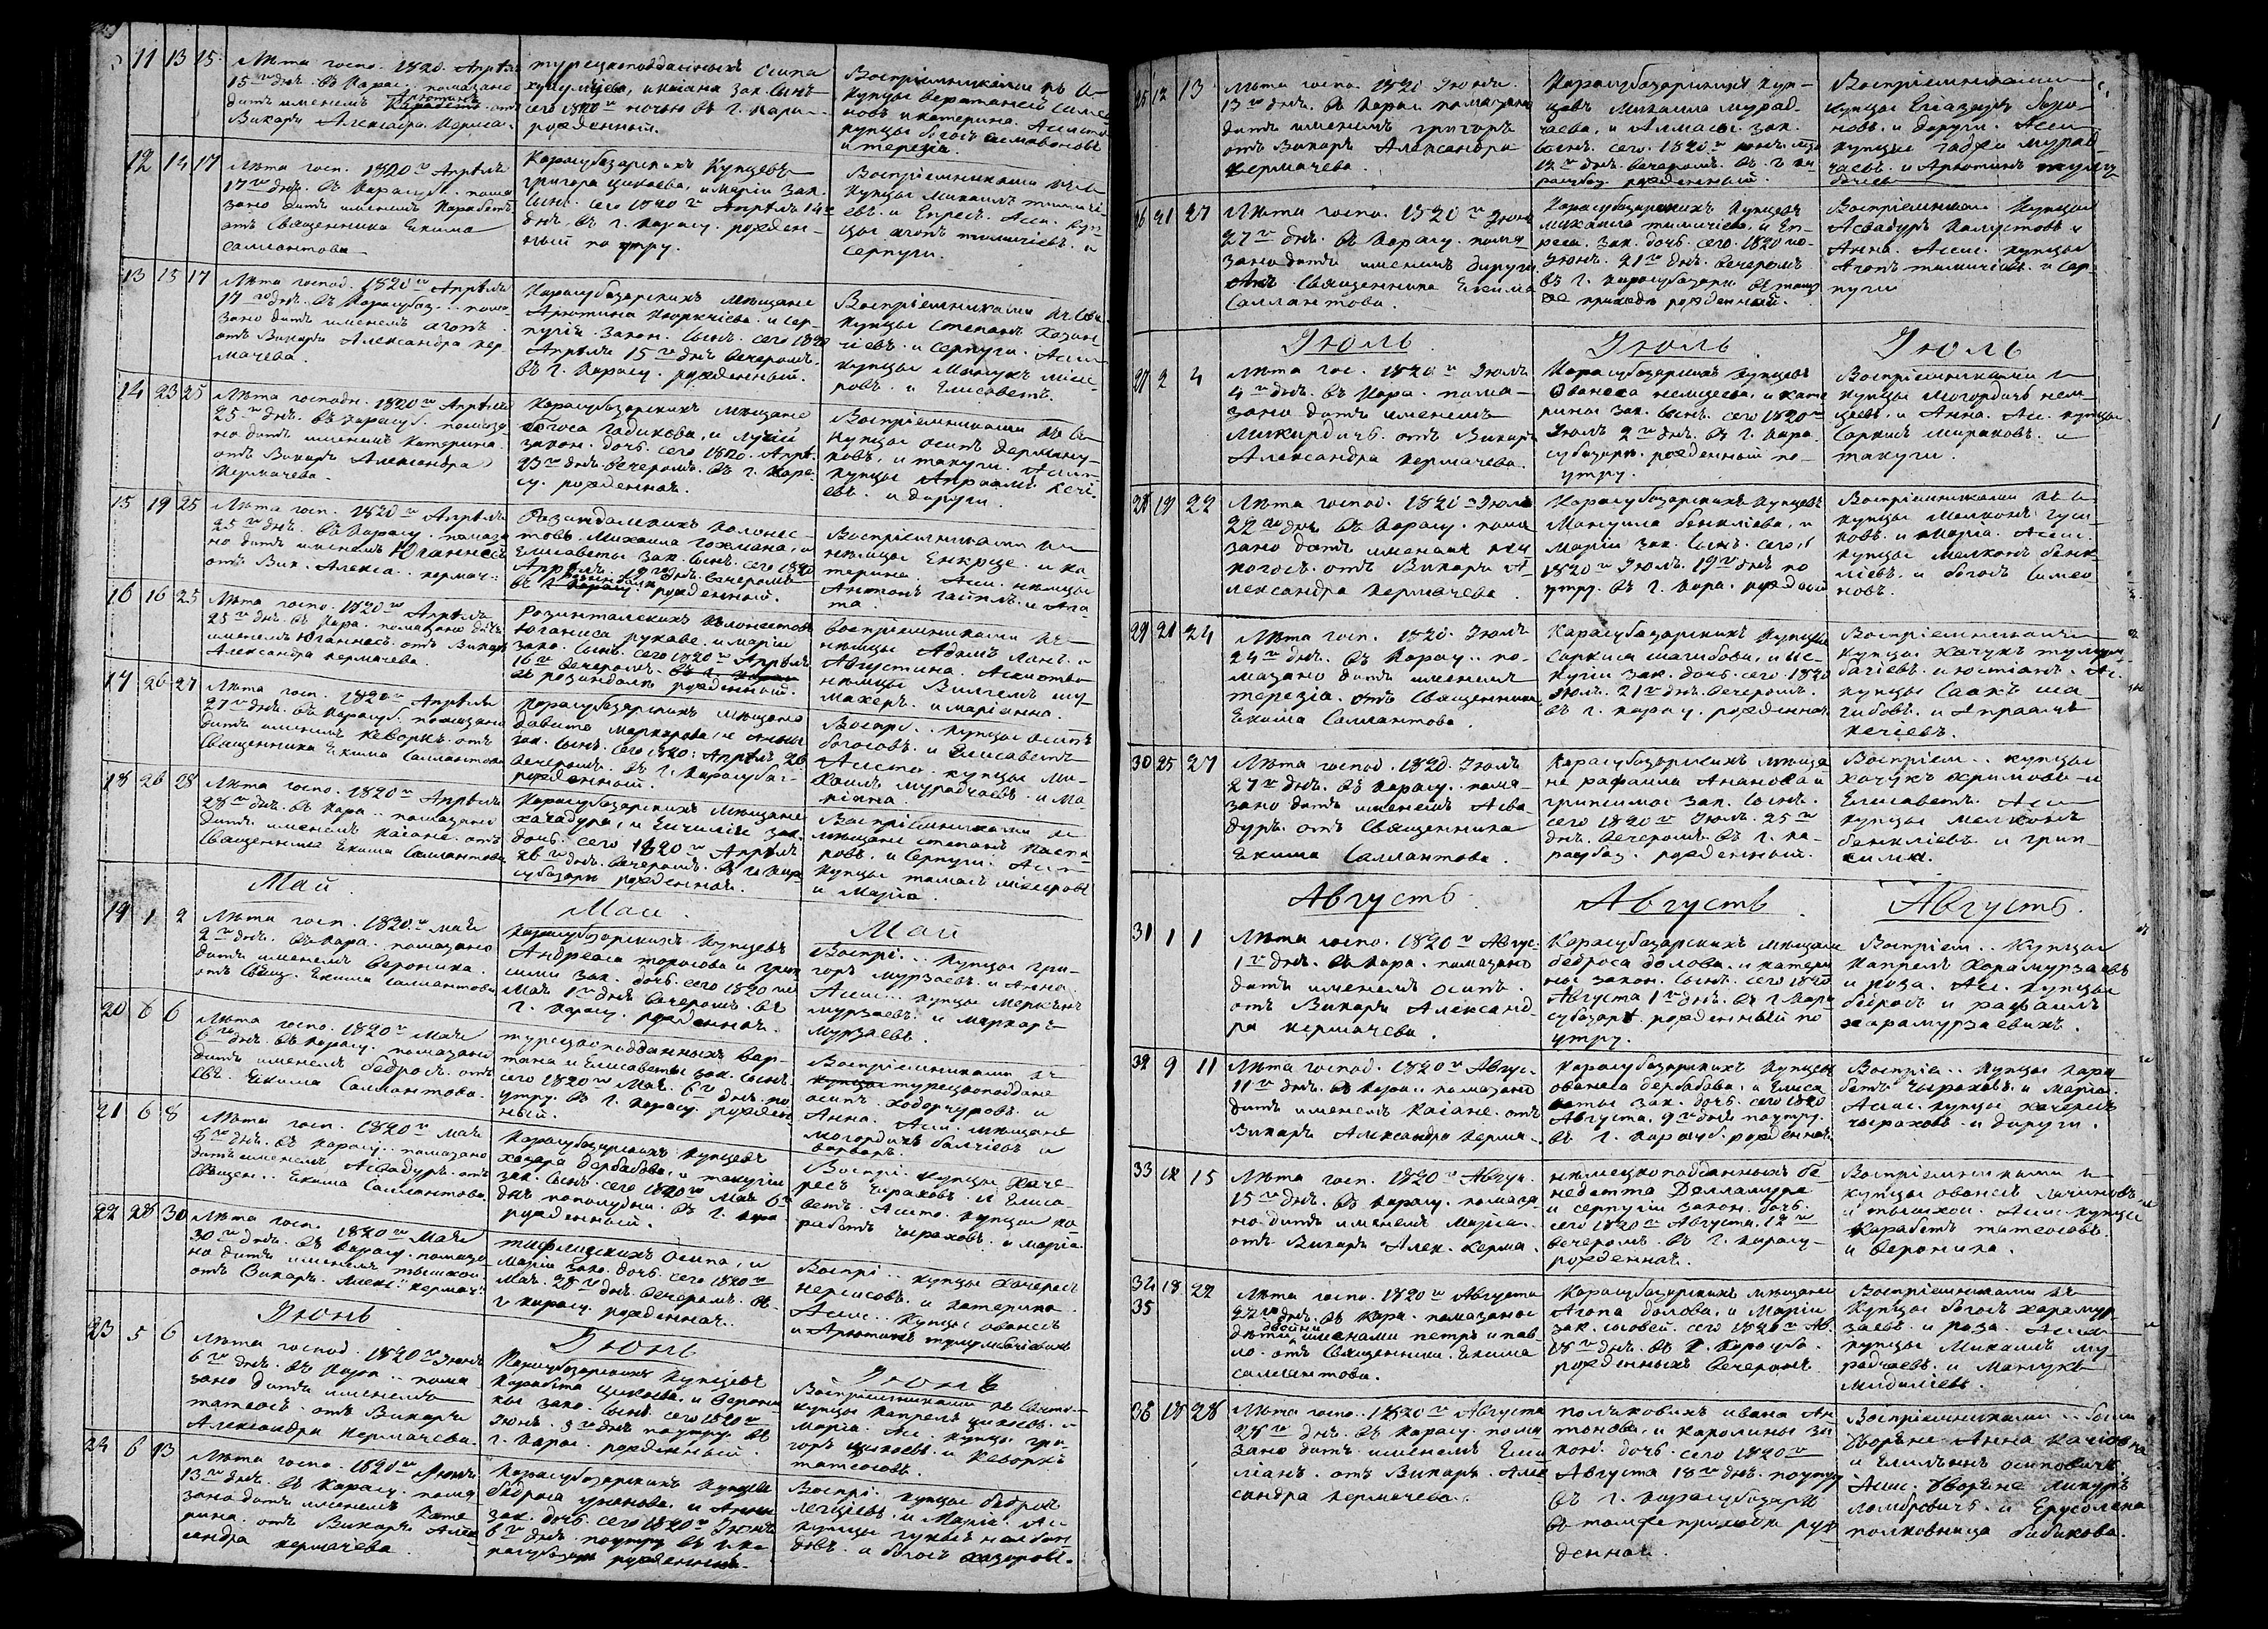 11 13 15
Лѣта госпо. 1820. Апрѣль
15 го днѣ. въ Карас. помазано
дитѣ именемъ Арютинъ отъ
Викарѣ Александра Керма.
турецкоподданныхъ Осипа
зак. сынъ
сего 1820 го ночью въ г. Кара
рожденный.
Воспріемниками
купцы
новъ и катерина. Ассист.
купцы богосъ симавоновъ
и терезіа.
12 14 17
Лѣта госп. 1820 го Апрѣль
17 го днѣ. въ Карасуб. пома
зано дитѣ именемъ Карабетъ
отъ Священника Екима
Саллантова
Карасубазарскихъ Купцевъ
григора цикаева, и маріи зак.
сынъ. сего 1820 го Апрѣль 14 го
днѣ. въ г. Карасу. рожден-
ный по утру.
Воспріемниками
купцы Михаилъ
евъ и Епресъ. Асси. куп
цы агопъ тишичіевъ. и
серпуги.
13 15 17
Лѣта господ. 1820 го Апрѣль
17 го днѣ. въ Карасубаз. пома
зано дитѣ именемъ агопъ
отъ Викарѣ Александра кер
мачева.
Карасубазарскихъ мѣщане
Арютина и сер-
пугіи. закон. сынъ. сего 1820
Апрѣль 15 го днѣ вечеромъ.
въ г. Карасу. рожденный.
Воспріемниками
купцы степанъ
и серпуги. Асси
купцы
ровъ. и Елисаветъ.
14 23 25
Лѣта господн. 1820 го Апрѣль
25 го днѣ. въ Карасуб. помаза
но дитѣ именемъ Катерина.
отъ Викарѣ Александра
Кермачева.
Карасубазарскихъ мѣщане
богоса гадикова, и лусіи
закон. дочь. сего 1820. Апрѣ.
23 го днѣ вечеромъ. въ г. Кара
су. рожденнаѣ.
Воспріемниками
купцы осипъ
ковъ, и такуги. Асси-
купцы Апраамъ кечі-
евъ. и даруги.
15 19 25
Лѣта госп. 1820 го Апрѣль
25 го днѣ. въ Карасу. помаза
но дитѣ именемъ Юганнесъ
отъ Вик. Алекса. кермач.
Розиндалскихъ Колонис-
товъ. Михаила гохмана, и
Елисаветы зак. сынъ. сего 1820
Апрѣль. 19 го днѣ. вечеромъ
рожденный.
Воспріемниками
нѣмцы и ка-
терина. Асси. нѣмцы
Антонъ и Ага
та
16 16 25
Лѣта госпо. 1820 го Апрѣль
25 го днѣ. въ Кара. помазано дитѣ
именемъ Юганнесъ. отъ Викарѣ
Александра кермачева.
Розинталскихъ Колонистовъ
Юганнса рукаве. и маріи
зако. сынъ. сего 1820 го Апрѣль
16 го вечеромъ.
въ розиндалѣ рожденный.
воспріемниками
нѣмцы Адамъ Ланг. и
Августина. Ассиство
нѣмцы Вилгелмъ шу-
махеръ. и маріанна.
17 26 27
Лѣта госп. 1820 го Апрѣль
27 го днѣ. въ Карасуб. помазано
дитѣ именемъ Кеворкъ. отъ
Священника Екима Саллантова
Карасубазарскихъ мѣщане
давита маркарова, и Анны
зак. сынъ. сего 1820. Апрѣль 26
вечеромъ. въ г. Карасубаз.
рожденный.
Воспрі.. купцы осипъ
богосовъ. и Елисаветъ
Ассисто. купцы Ми-
хаилъ мурадчаевъ. и Ма
ріанна.
18 26 28
Лѣта госпо. 1820 го Апрѣль
28 го днѣ. въ Кара.. помазано
дитѣ именемъ Каіане. отъ
Священника Екима Саллантова
Карасубазарскихъ Мѣщане
хачадура, и Енчиліи зак.
дочь. сего 1820 го Апрѣль
26 го днѣ вечеромъ. въ г. Кара
субазарѣ рожденнаѣ.
Воспріемниками
мѣщане степанъ каспа
ровъ. и серпуги. Асси
купцы томасъ
и Маріа.
Май. Май. Май
19 1 2
Лѣта госп. 1820 го маѣ
2 го днѣ. въ Кара. помазано
дитѣ именемъ Вероника.
отъ Свящ. Екима Саллантова
Карасубазарскихъ Купцевъ
Андреаса торосова и грип
сими зак. дочь. сего 1820 го
Маѣ 1 го днѣ вечеромъ. въ
г. Карасу. рожденнаѣ.
Воспрі... купцы гри-
горъ мурзаевъ. и Анна.
Ассис... купцы меркѣнъ
мурзаевъ. и маркаръ
мурзаевъ.
20 6 6
Лѣта госпо. 1820 го Маѣ
6 го днѣ. въ Карасу. помазано
дитѣ именемъ бедросъ. отъ
Свѣ. Екима Саллантова.
турецкоподданныхъ вар-
тана и Елисаветы зак. сынъ
сего 1820 го Маѣ. 6 го днѣ. по
утру. въ г. Карасу. рожден
ный.
Воспріемниками
турецкоподдане
осипъ. ходорчуровъ. и
Анна. Асси. мѣщане
могордичь балчіевъ и
варваръ.
21 6 8
Лѣта госп. 1820 го маѣ
8 го днѣ. въ Карасу.. помазано
дитѣ именемъ Асвадуръ. отъ
Священ.. Екима Саллантова
Карасубазарскихъ купцевъ
хачера дербабова, и такугіи
зак. сынъ. сего 1820 го Маѣ 6 го
днѣ пополудни. въ г. Кара
рожденный.
Воспрі. купцы Хаче-
ресъ чыраховъ. и Елиса-
ветъ. Ассис. купцы ка
рабетъ чыраховъ. и маріа
22 28 30
Лѣта госп. 1820 го Маѣ
30 го днѣ. въ Карасу. помаза
но дитѣ именемъ тышхои
отъ Викарѣ. Алекс. кермач.
тифлисскихъ Осипа, и
маріи зако. дочь. сего 1820 го
Маѣ. 28 го днѣ. вечеромъ. въ
г. Карасу. рожденнаѣ.
Воспрі.. купцы хачересъ
нерсисовъ. и катерина.
Асси.. купцы ованесъ
и Арютинъ тулумбачіевихъ
Іюнь Іюнь Іюнь
23 5 6
Лѣта господ. 1820 го Іюнѣ
6 го днѣ. въ Кара.. пома-
зано дитѣ именемъ
татеосъ. отъ Викарѣ
Александра кермачева.
Карасубазарскихъ купцевъ
Карабета цикаева. и Верони
ки зако. сынъ. сего 1820 го
Іюнѣ. 5 го днѣ поутру. въ
г. Карас. рожденный
Воспріемниками
купцы капрелъ цикаевъ. и
маріа. Асс. купцы гри-
горъ цикаевъ. и Кеворкъ
татеосовъ.
24 6 13
Лѣта госпо. 1820 го Іюнѣ
13 го днѣ. въ Карасу. пома
зано дитѣ именемъ Кате
рина. отъ Викарѣ Алек
сандра кермачева.
Карасубазарскихъ купцевъ
бедроса унанова, и Анны
зак. дочь. сего 1820 го Іюнѣ
6 го днѣ. поутру въ г. Ка
расубазарѣ рожденнаѣ.
Воспрі. купцы бедросъ
и маріа. Ас
купцы гукасъ налбан
довъ. и богосъ хазаровъ.
25 12 13
Лѣта госпо. 1820 Іюнѣ.
13 го днѣ. въ Карас помазано
дитѣ именемъ григоръ
отъ Викарѣ Александра
Кермачева.
Карасубазарскихъ Куп-
цевъ Михаила мурад-
чаева, и Алмасы. зак.
сынъ. сего. 1820 го Іюнѣ
12 го днѣ. вечеромъ. въ г Ка
расубаз. рожденный.
Воспріемниками
купцы
новъ. и даруги. Асси
купцы гаджи мурад-
чаевъ. и Арютинъ тулум
бачіевъ
26 21 27
Лѣта госпо. 1820 го Іюнѣ
27 го днѣ. въ Карасу. пома
зано дитѣ именемъ диругы
отъ Священника Екима
Саллантова.
Карасубазарскихъ купцевъ
михаила тишичіева, и Еп-
реси. зак. дочь. сего. 1820 го
Іюнѣ. 21 го днѣ. вечеромъ
въ г. Карасубазарѣ въ томъ
же приходѣ рожденный.
Воспріемникам Купцы
Асвадуръ Калустовъ и
Анна. Асси. купцы
Агопъ тишичіевъ. и Сер-
пуги
Іюль Іюль Іюль
27 2 4
Лѣта гос. 1820 го Іюлѣ
4 го днѣ. въ Кара. пома-
зано дитѣ именемъ
Мижирдичъ. отъ Викарѣ
Александра кермачева.
Карасубазарскихъ купцевъ
Ованеса немцева, и кате
рины зак. сынъ. сего 1820 го
Іюлѣ 2 го днѣ. въ г. Кара
субазарѣ. рожденный по-
утру.
Воспріемниками и
купцы могордичь нем-
цевъ. и Анна. Ас. купцы
Саркисъ мираковъ. и
такуги.
28 19 22
Лѣта господ. 1820 го Іюлѣ
22 го днѣ въ Карасу. пома
зано дитѣ именемъ
когосъ. отъ Викарѣ А-
лександра Кермачева.
Карасубазарскихъ Купцевъ
Манушла бенкліева, и
маріи зак. сынъ. сего
1820 го Іюлѣ. 19 го днѣ по
утру. въ г. Кара. рожденый
Воспріемниками
купцы мелконъ
ковъ. и маріа. Асси.
купцы мелконъ бенк
ліевъ. и богосъ симео
новъ.
29 21 24
Лѣта госп. 1820. Іюлѣ
24 го днѣ. въ Карасу.. по-
мазано дитѣ именемъ
терезіа. отъ Священника
Екима Саллантова.
Карасубазарскихъ Купцевъ
Саркиса шагибова, и
зак. дочь. сего. 1820
Іюлѣ. 21 го днѣ. вечеромъ.
въ г. Карасу. рожденнаѣ
Воспріемниками
купцы хачукъ тулум
бачіевъ. и юстіанъ. Ас.
купцы Саакъ ша-
гибовъ. и Апраамъ
кечіевъ.
30 25 27
Лѣта господ. 1820. Іюлѣ
27 го днѣ. въ Карасу. пома-
зано дитѣ именемъ Асва
дуръ. отъ Священника
Екима Саллантова.
Карасубазарскихъ мѣща
не рафаила Ананова и
грипсимы зак. сынъ.
сего 1820 го Іюлѣ. 25 го
днѣ. вечеромъ. въ г. Ка-
расубаз. рожденный.
Воспріем.. купцы
хачукъ хримовъ и
Елисаветъ. Асси
купцы мелконъ
бенкліевъ и грип-
сима.
Августъ. Августъ. Августъ.
31 1 1
Лѣта госпо. 1820 го Авгус.
1 го днѣ. въ Кара. помазано
дитѣ именемъ осипъ.
отъ Викарѣ Александ
ра кермачева.
Карасубазарскихъ мѣщане
бедроса долова. и катери
ны закон. сынъ. сего 1820
Августа 1 го днѣ. въ г Кара
субазарѣ. рожденный по
утру.
Воспріем.. Купцы
Капрелъ Харамурзаевъ
и роза. Асс. купцы
бедросъ и рафаилъ
харамурзаевихъ.
32 9 11
Лѣта господ. 1820 го Авгус.
11 го днѣ. въ Кара.. помазано
дитѣ именемъ Каіане. отъ
Викарѣ Александра Керма.
Карасубазарскихъ Купцевъ
ованеса дербабова. и Елиса
веты зак. дочь. сего 1820
Августа. 9 го днѣ поутру.
въ г. Карасуб. рожденнаѣ.
Воспріе.. Купцы Кара
бетъ Чыраховъ. и маріа.
Ассис. купцы хачересъ
чыраховъ. и даруги.
33 12 15
Лѣта госп. 1820 го Авгус.
15 го днѣ. въ Карасу. помаза
но дитѣ именемъ Маріа.
отъ Викарѣ Алек. Керма.
нѣмецкоподданныхъ бе
недетта Делламура
и серпугіи закон. дочь.
сего 1820 го Августа. 12 го
вечеромъ. въ г. Карасу-
рожденнаѣ.
Воспріемниками и
купцы ованесъ лачиновъ
и тышхои. Асси. купцы
Карабетъ татеосовъ.
и Вероника.
34 18 22
35
Лѣта госпо. 1820 го Августа
22 го днѣ. въ Кара. помазаное
дѣти двойни именами петръ и пав
ло. отъ Священника. Екима
саллантова.
Карасубазарскихъ мѣщане
Агопа долова. и Маріи
зак. сыновей. сего 1820 го Ав.
18 го днѣ. въ г. Карасуба.
рожденныхъ вечеромъ
Воспріемниками
купцы богосъ харамур
заевъ. и роза. Асси
купцы михаилъ му-
радчаевъ. и Манушкъ
мидиліевъ.
36 18 28
Лѣта госпо.. 1820 го Августа
28 го днѣ. въ Карасу. пома
зано дитѣ. именемъ Еми
ліанъ. отъ Викарѣ. Алек
сандра Кермачева.
полѣковихъ ивана Ан
тонова, и каролины за
кон. дочь. сего 1820 го
Августа 18 го днѣ. поутру
въ г. Карасубазарѣ
въ томже приходѣ рож
деннаѣ.
Воспріемниками.. были
Дворѣне Анна
и осиповичъ
Асси. Дворѣне
Ломбровичъ. и Ерусолена
полковница бибикова.